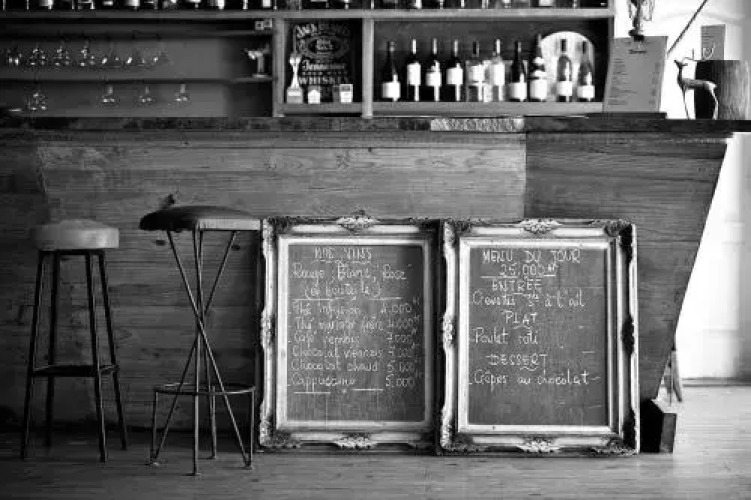 JACK DANIEL'S
Tennessee
WHISKEY
NOS VINS
Rouge, Blanc, Rosé
(la bouteille)
Thé infusion 4.000
Thé 4.000
Café viennois 7.000
Chocolat viennois
Chocolat chaud 5.000
Cappuccino 5.000
MENU DU JOUR
25.000
ENTRÉE
Crevettes à l'ail
PLAT
Poulet rôti
DESSERT
Crêpes au chocolat